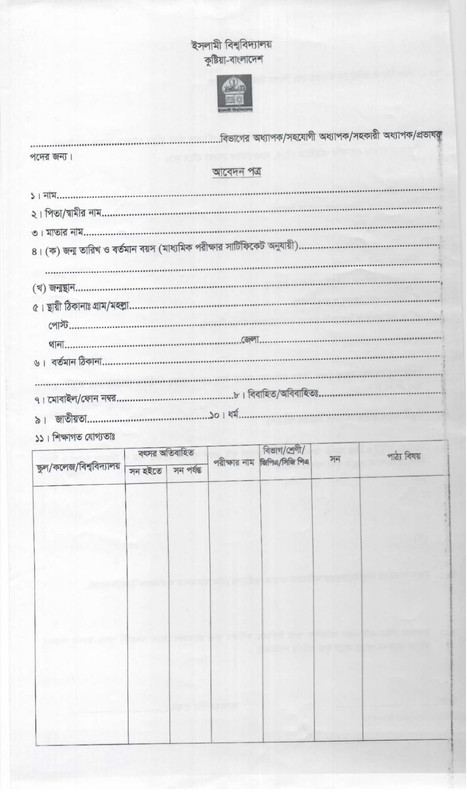 ইসলামী বিশ্ববিদ্যালয়
কুষ্টিয়া-বাংলাদেশ
..................................................বিভাগের অধ্যাপক/সহযোগী অধ্যাপক/সহকারী অধ্যাপক/প্রভাষক
পদের জন্য।
আবেদন পত্র
১। নাম..................................................
২। পিতা/স্বামীর নাম..................................................
৩। মাতার নাম..................................................
৪। (ক) জন্ম তারিখ ও বর্তমান বয়স (মাধ্যমিক পরীক্ষার সার্টিফিকেট অনুযায়ী)........................................
..................................................
(খ) জন্মস্থান..................................................
৫। স্থায়ী ঠিকানাঃ গ্রাম/মহল্লা..................................................
পোস্ট..................................................
থানা..................................................জেলা..................................................
৬। বর্তমান ঠিকানা..................................................
..................................................
৭। মোবাইল/ফোন নম্বর........................................৮। বিবাহিত/অবিবাহিতঃ........................................
৯। জাতীয়তা........................................১০। ধর্ম..................................................
১১। শিক্ষাগত যোগ্যতাঃ
স্কুল/কলেজ/বিশ্ববিদ্যালয়
বৎসর অতিবাহিত
সন হইতে
সন পর্যন্ত
পরীক্ষার নাম
বিভাগ/শ্রেণী/
জিপিএ/সিজি পিএ
সন
পাঠ্য বিষয়